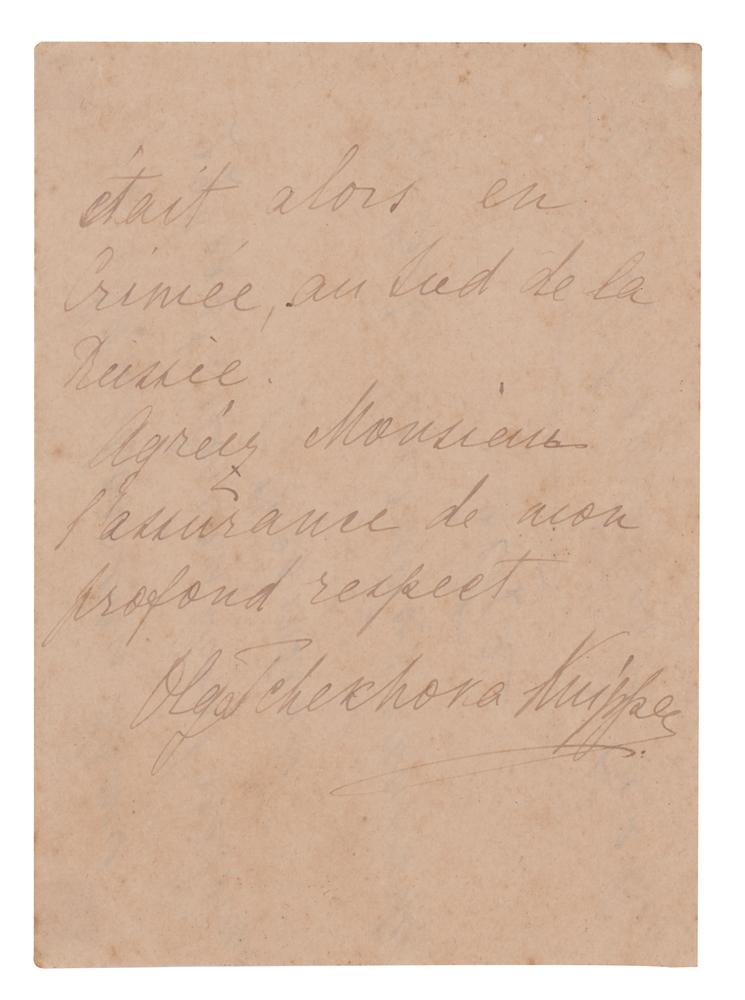 était alors en
Crimée, au Sud de la
Russie.
Agréez Monsieur
l'assurance de mon
profond respect
Olga Tchekhova Knipper